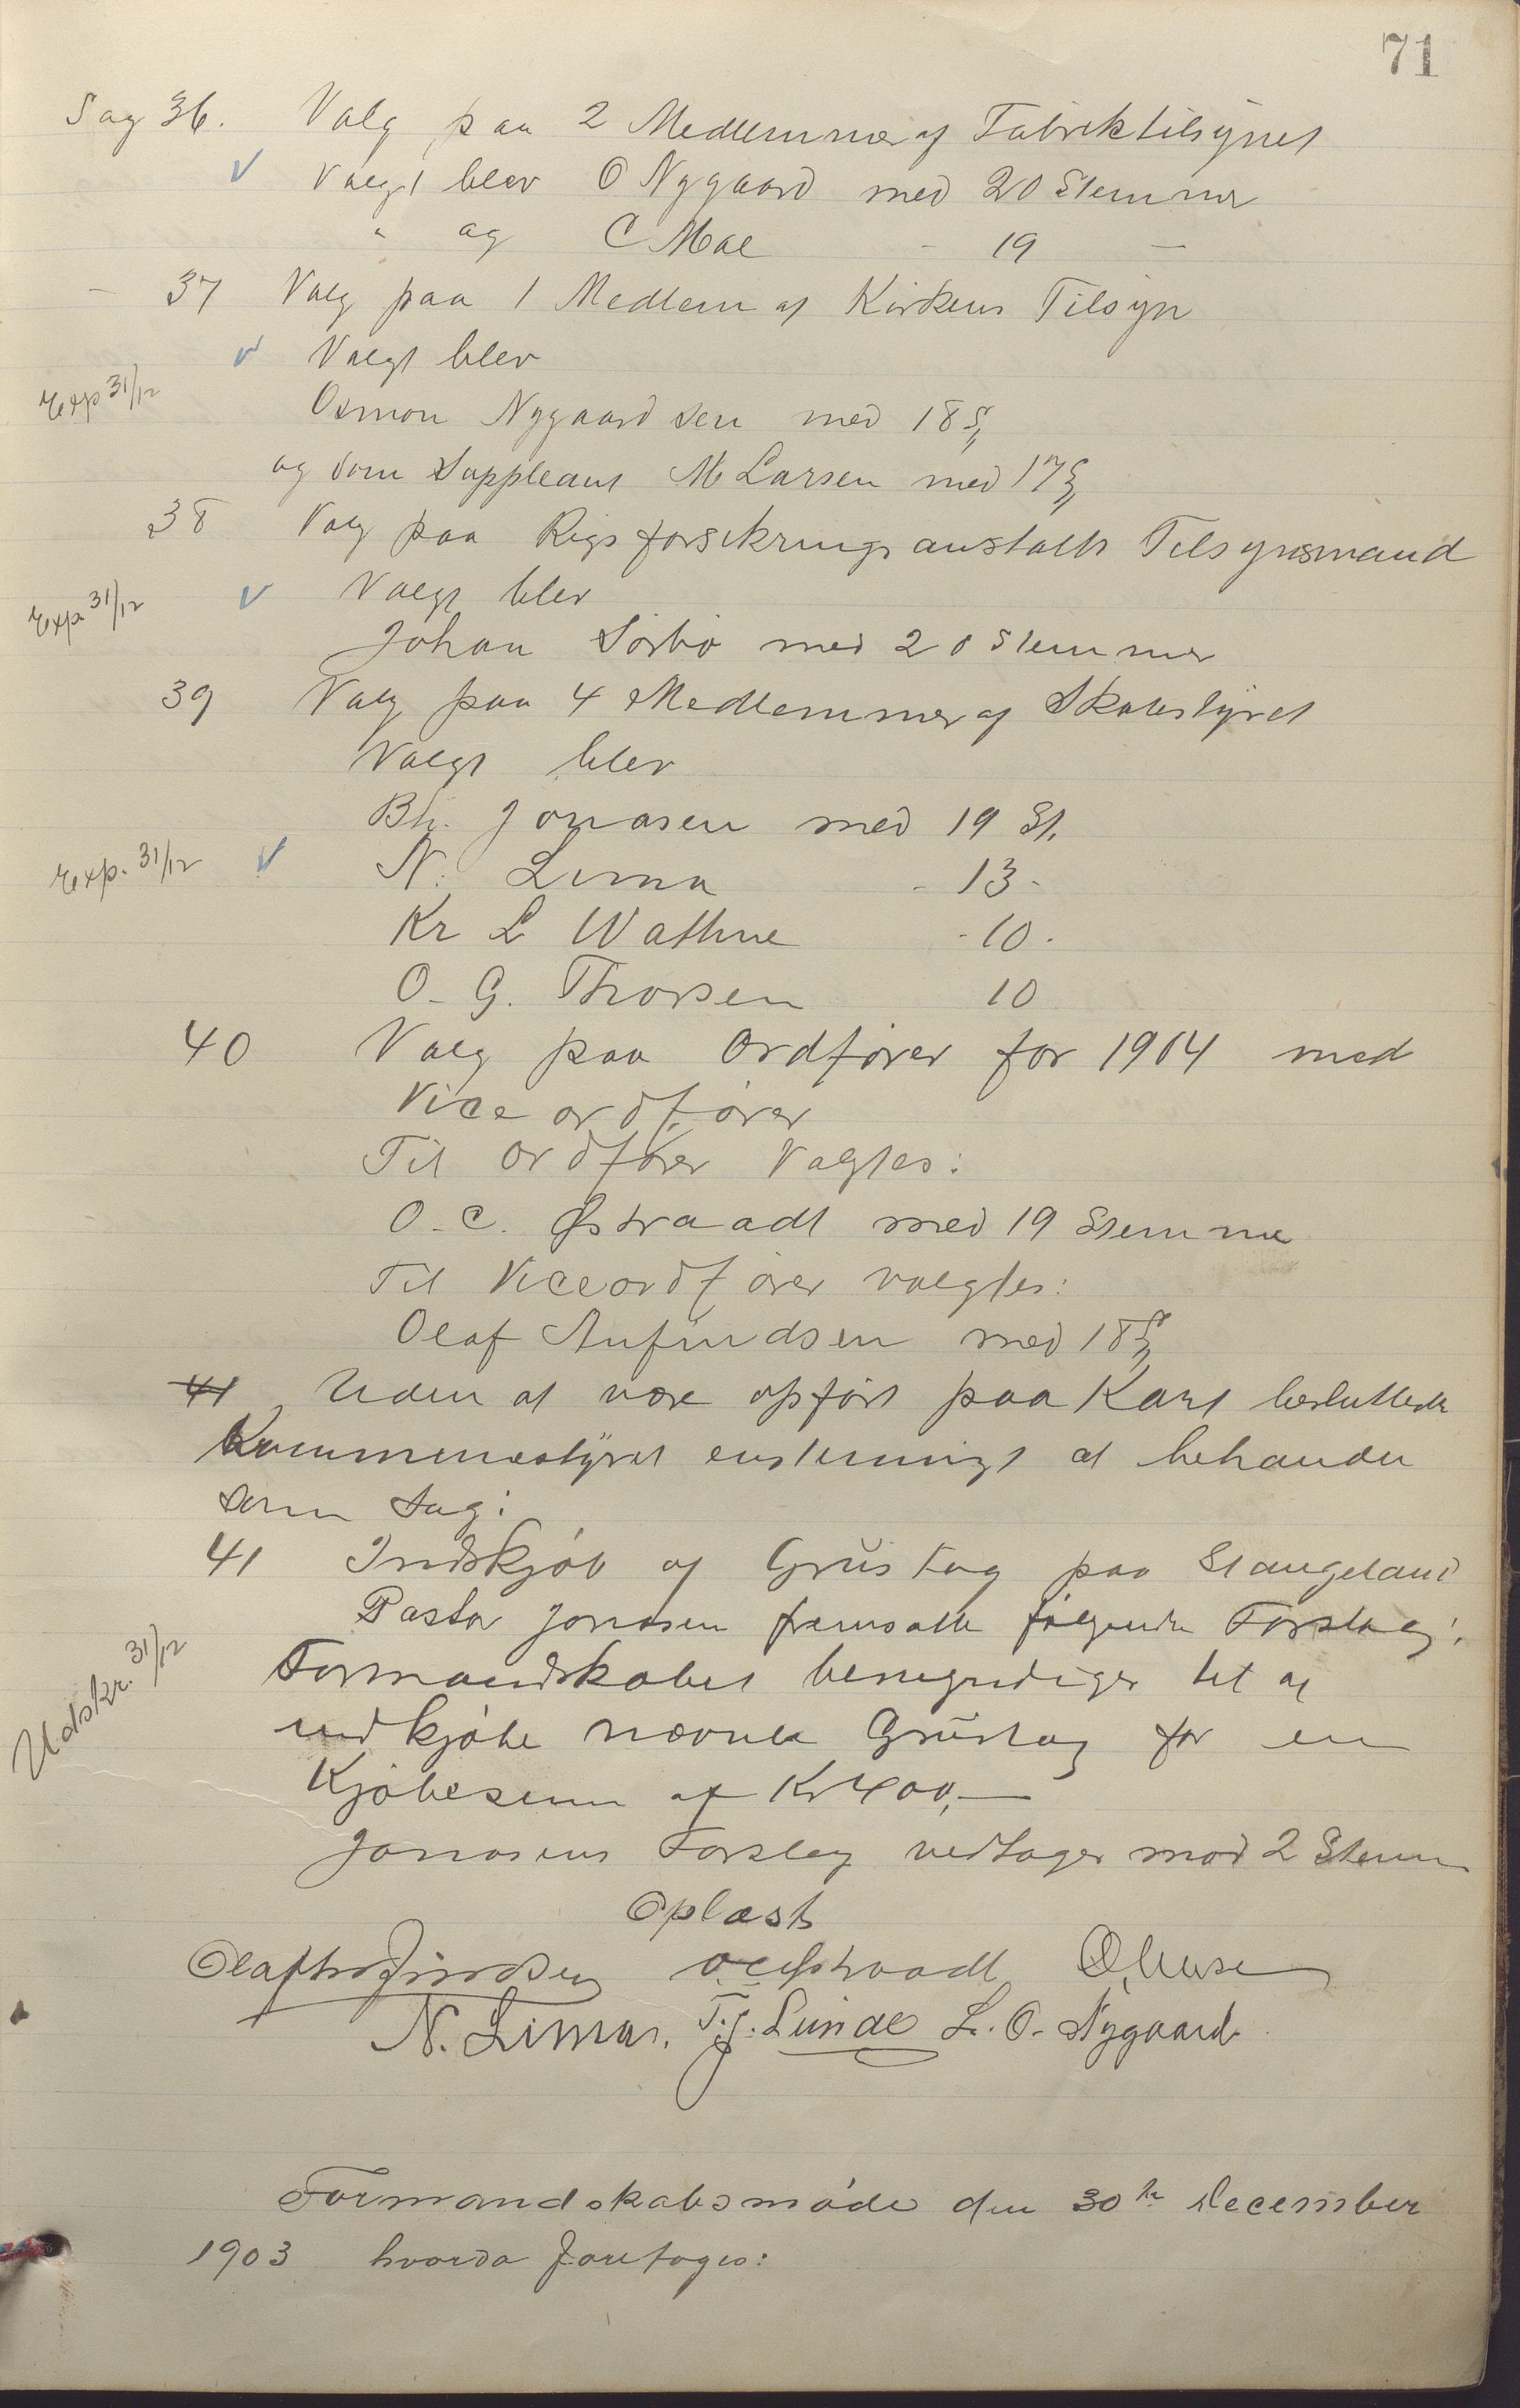 71
Sag 36. Valg paa 2 Medlemmer af Fabriktilsynet
Valgt blev O Nygaard med 20 Stemmer
" og C Moe - 19 -
- 37 Valg paa 1 Medlem af Kirkens Tilsyn
Valgt blev
Exp 31/12
Osmon Nygaard sen med 18 St
og som Suppleant M Larsen med 17 St
38 Valg paa Rigsforsikringsanstalts Tilsynsmand
Exp. 31/12 Valgt blev
Johan Sörbö med 20 Stemmer
39 Valg paa 4 Medlemmer af Skolestyret
Valgt blev
Br. Jonasen med 19 St.
Exp. 31/12 N. Lima - 13 -
Kr L Wathne - 10 -
O. G. Thorsen 10
40 Valg paa Ordförer for 1904 med
Vice ordförer
Til Ordförer Valgtes:
O. C. Østraadt med 19 Stemmer
Til Viceordförer valgtes:
Olaf Anfindsen med 18 St
41 Uden at være opfört paa Kart besluttede
Kommunestyret enstemmigt at behandle
som Sag:
41 Indskjöb af Grustag paa Stangeland
Pastor Jonasen fremsatte fölgende Forslag:
Udskr. 31/12
Formandskabet bemyndiges til at
indkjöbe nævnte Grustag for en
Kjöbesum af Kr 400,—
Jonasens Forslag vedtages mod 2 Stemm
Oplæst
Olaf Anfindsen OC Østraadt
N. Lima. T. J. Lunde L. O. Nygaard.
Formandskabsmöde den 30te December
1903 hvorda Foretoges: